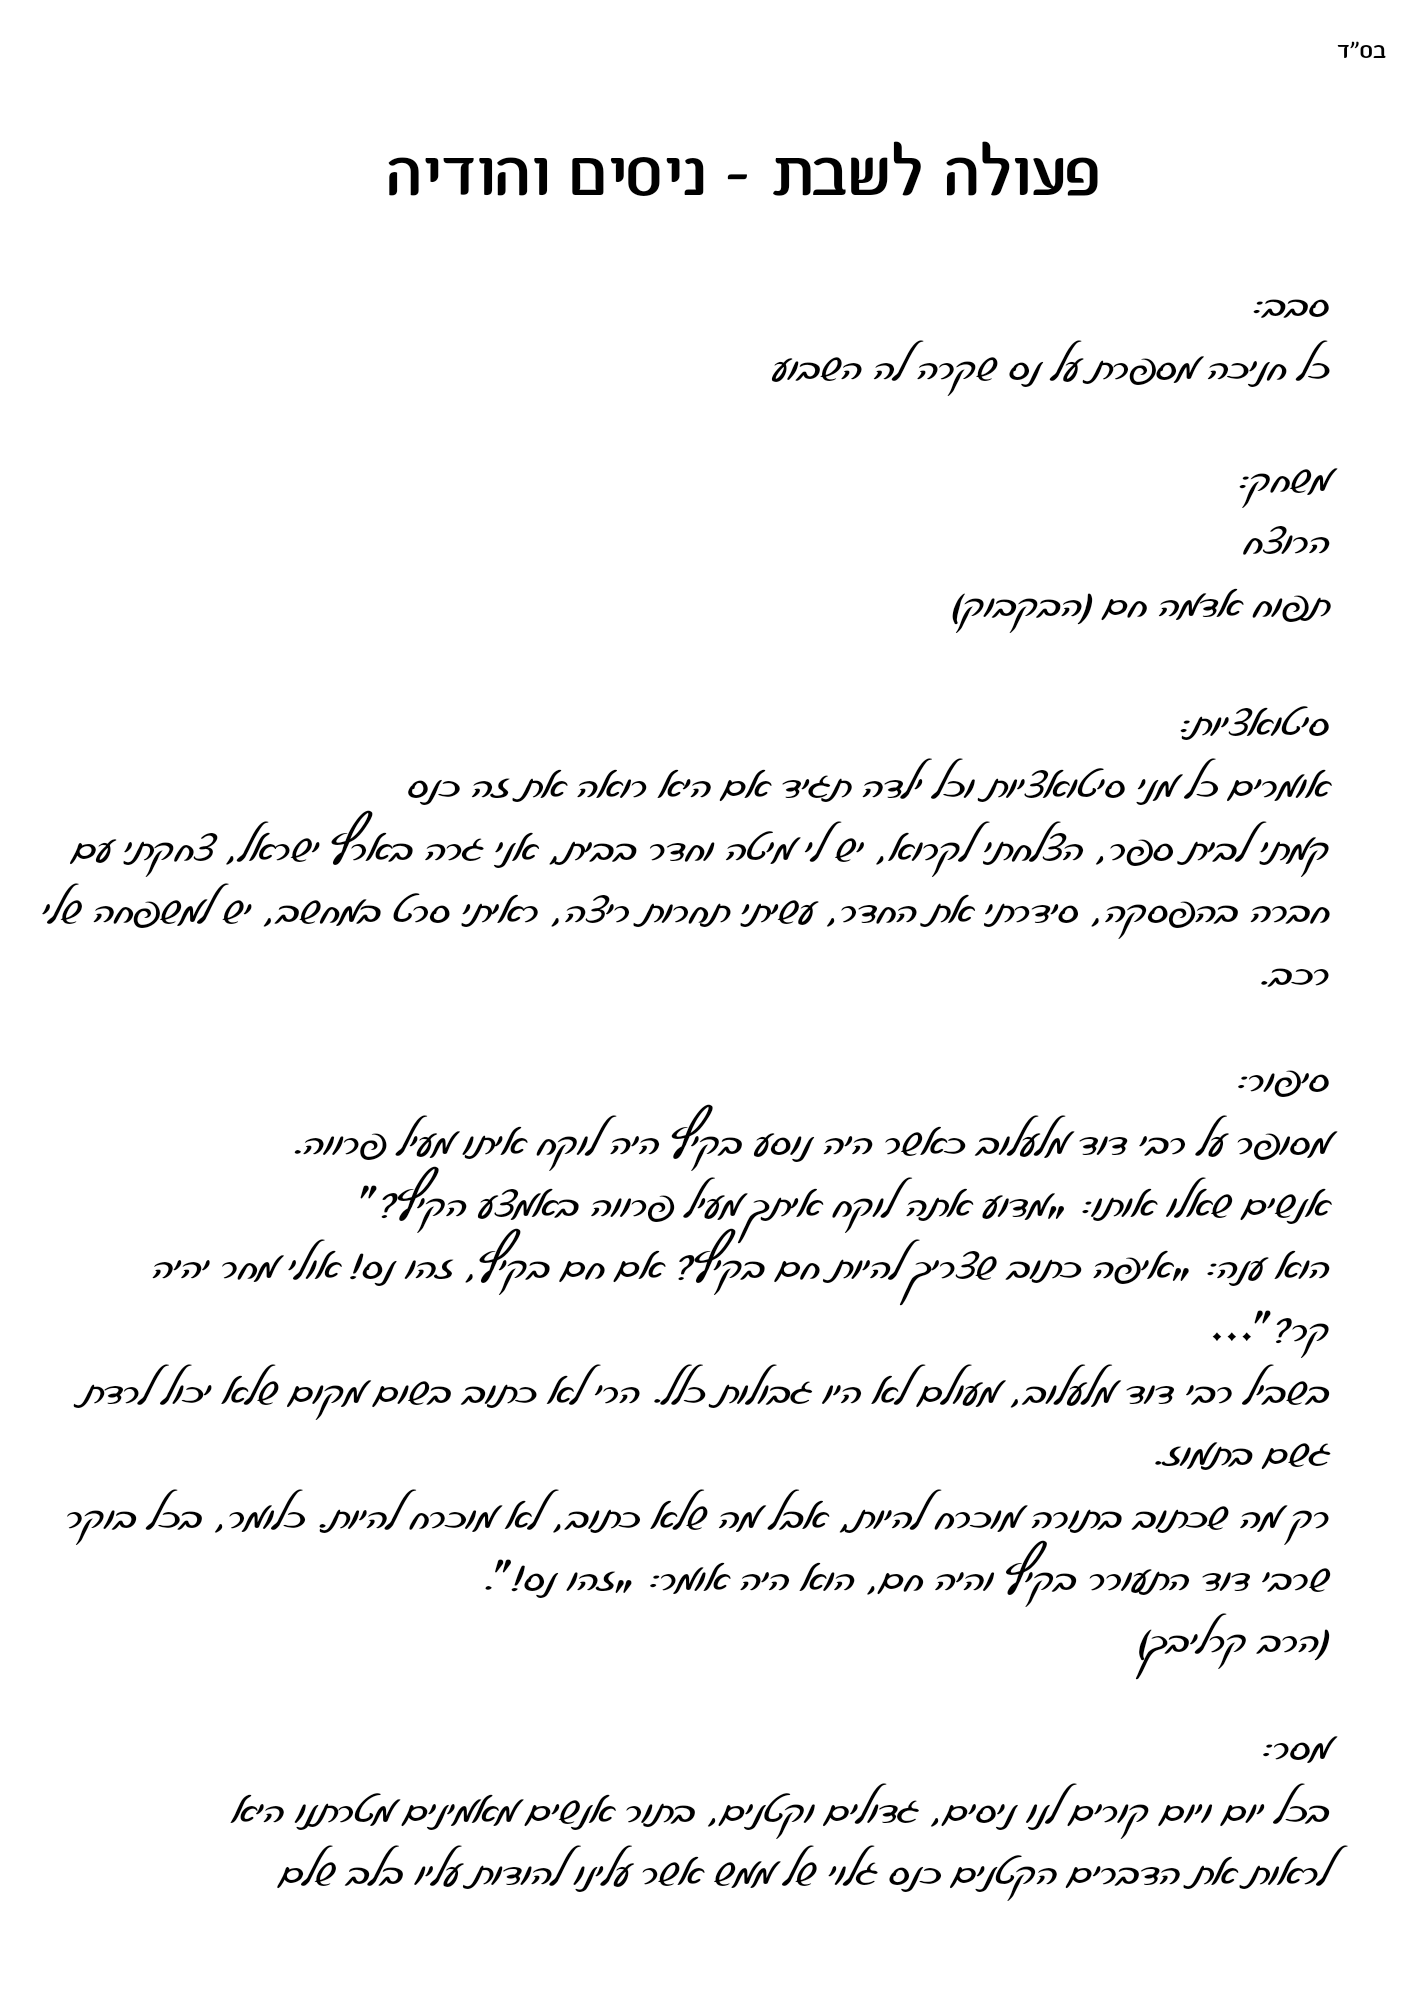 בס"ד
פעולה לשבת - ניסים והודיה
סבב:
כל חניכה מספרת על נס שקרה לה השבוע
משחק:
הרוצח
תפוח אדמה חם (הבקבוק)
סיטואציות:
אומרים כל מני סיטואציות וכל ילדה תגיד אם היא רואה את זה כנס
קמתי לבית ספר, הצלחתי לקרוא, יש לי מיטה וחדר בבית, אני גרה בארץ ישראל, צחקתי עם
חברה בהפסקה, סידרתי את החדר, עשיתי תחרות ריצה, ראיתי סרט במחשב, יש למשפחה שלי
רכב.
סיפור:
מסופר על רבי דוד מלעלוב כאשר היה נוסע בקיץ היה לוקח איתו מעיל פרווה.
אנשים שאלו אותו: „מדוע אתה לוקח איתך מעיל פרווה באמצע הקיץ?"
הוא ענה: „איפה כתוב שצריך להיות חם בקיץ? אם חם בקיץ, זהו נס! אולי מחר יהיה
קר?"...
בשביל רבי דוד מלעלוב, מעולם לא היו גבולות כלל. הרי לא כתוב בשום מקום שלא יכול לרדת
גשם בתמוז.
רק מה שכתוב בתורה מוכרח להיות, אבל מה שלא כתוב, לא מוכרח להיות. כלומר, בכל בוקר
שרבי דוד התעורר בקיץ והיה חם, הוא היה אומר: „זהו נס!".
(הרב קרליבך)
מסר:
בכל יום ויום קורים לנו ניסים, גדולים וקטנים, בתור אנשים מאמינים מטרתנו היא
לראות את הדברים הקטנים כנס גלוי של ממש אשר עלינו להודות עליו בלב שלם